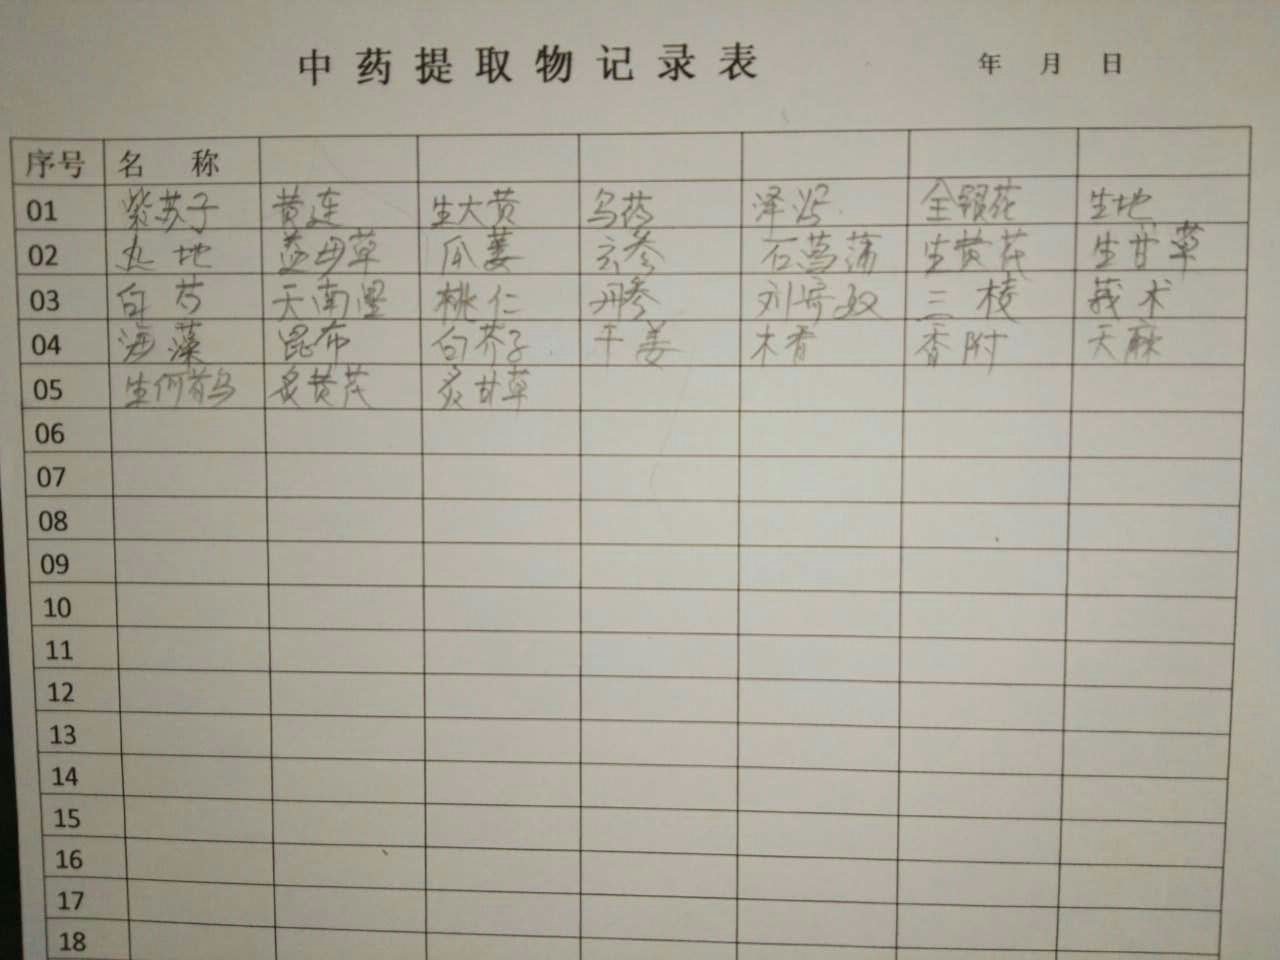 中药提取物记录表 年 月 日
序号 名 称
01 紫苏子 黄连 生大黄 乌药 泽泻 金银花 生地
02 地 益母草 瓜蒌 玄参 石菖蒲 生黄芪 生甘草
03 白芍 天南星 桃仁 丹参 刘寄奴 三棱 莪术
04 海藻 昆布 白芥子 干姜 木香 香附 天麻
05 生何首乌 炙黄芪 炙甘草
06
07
08
09
10
11
12
13
14
15
16
17
18